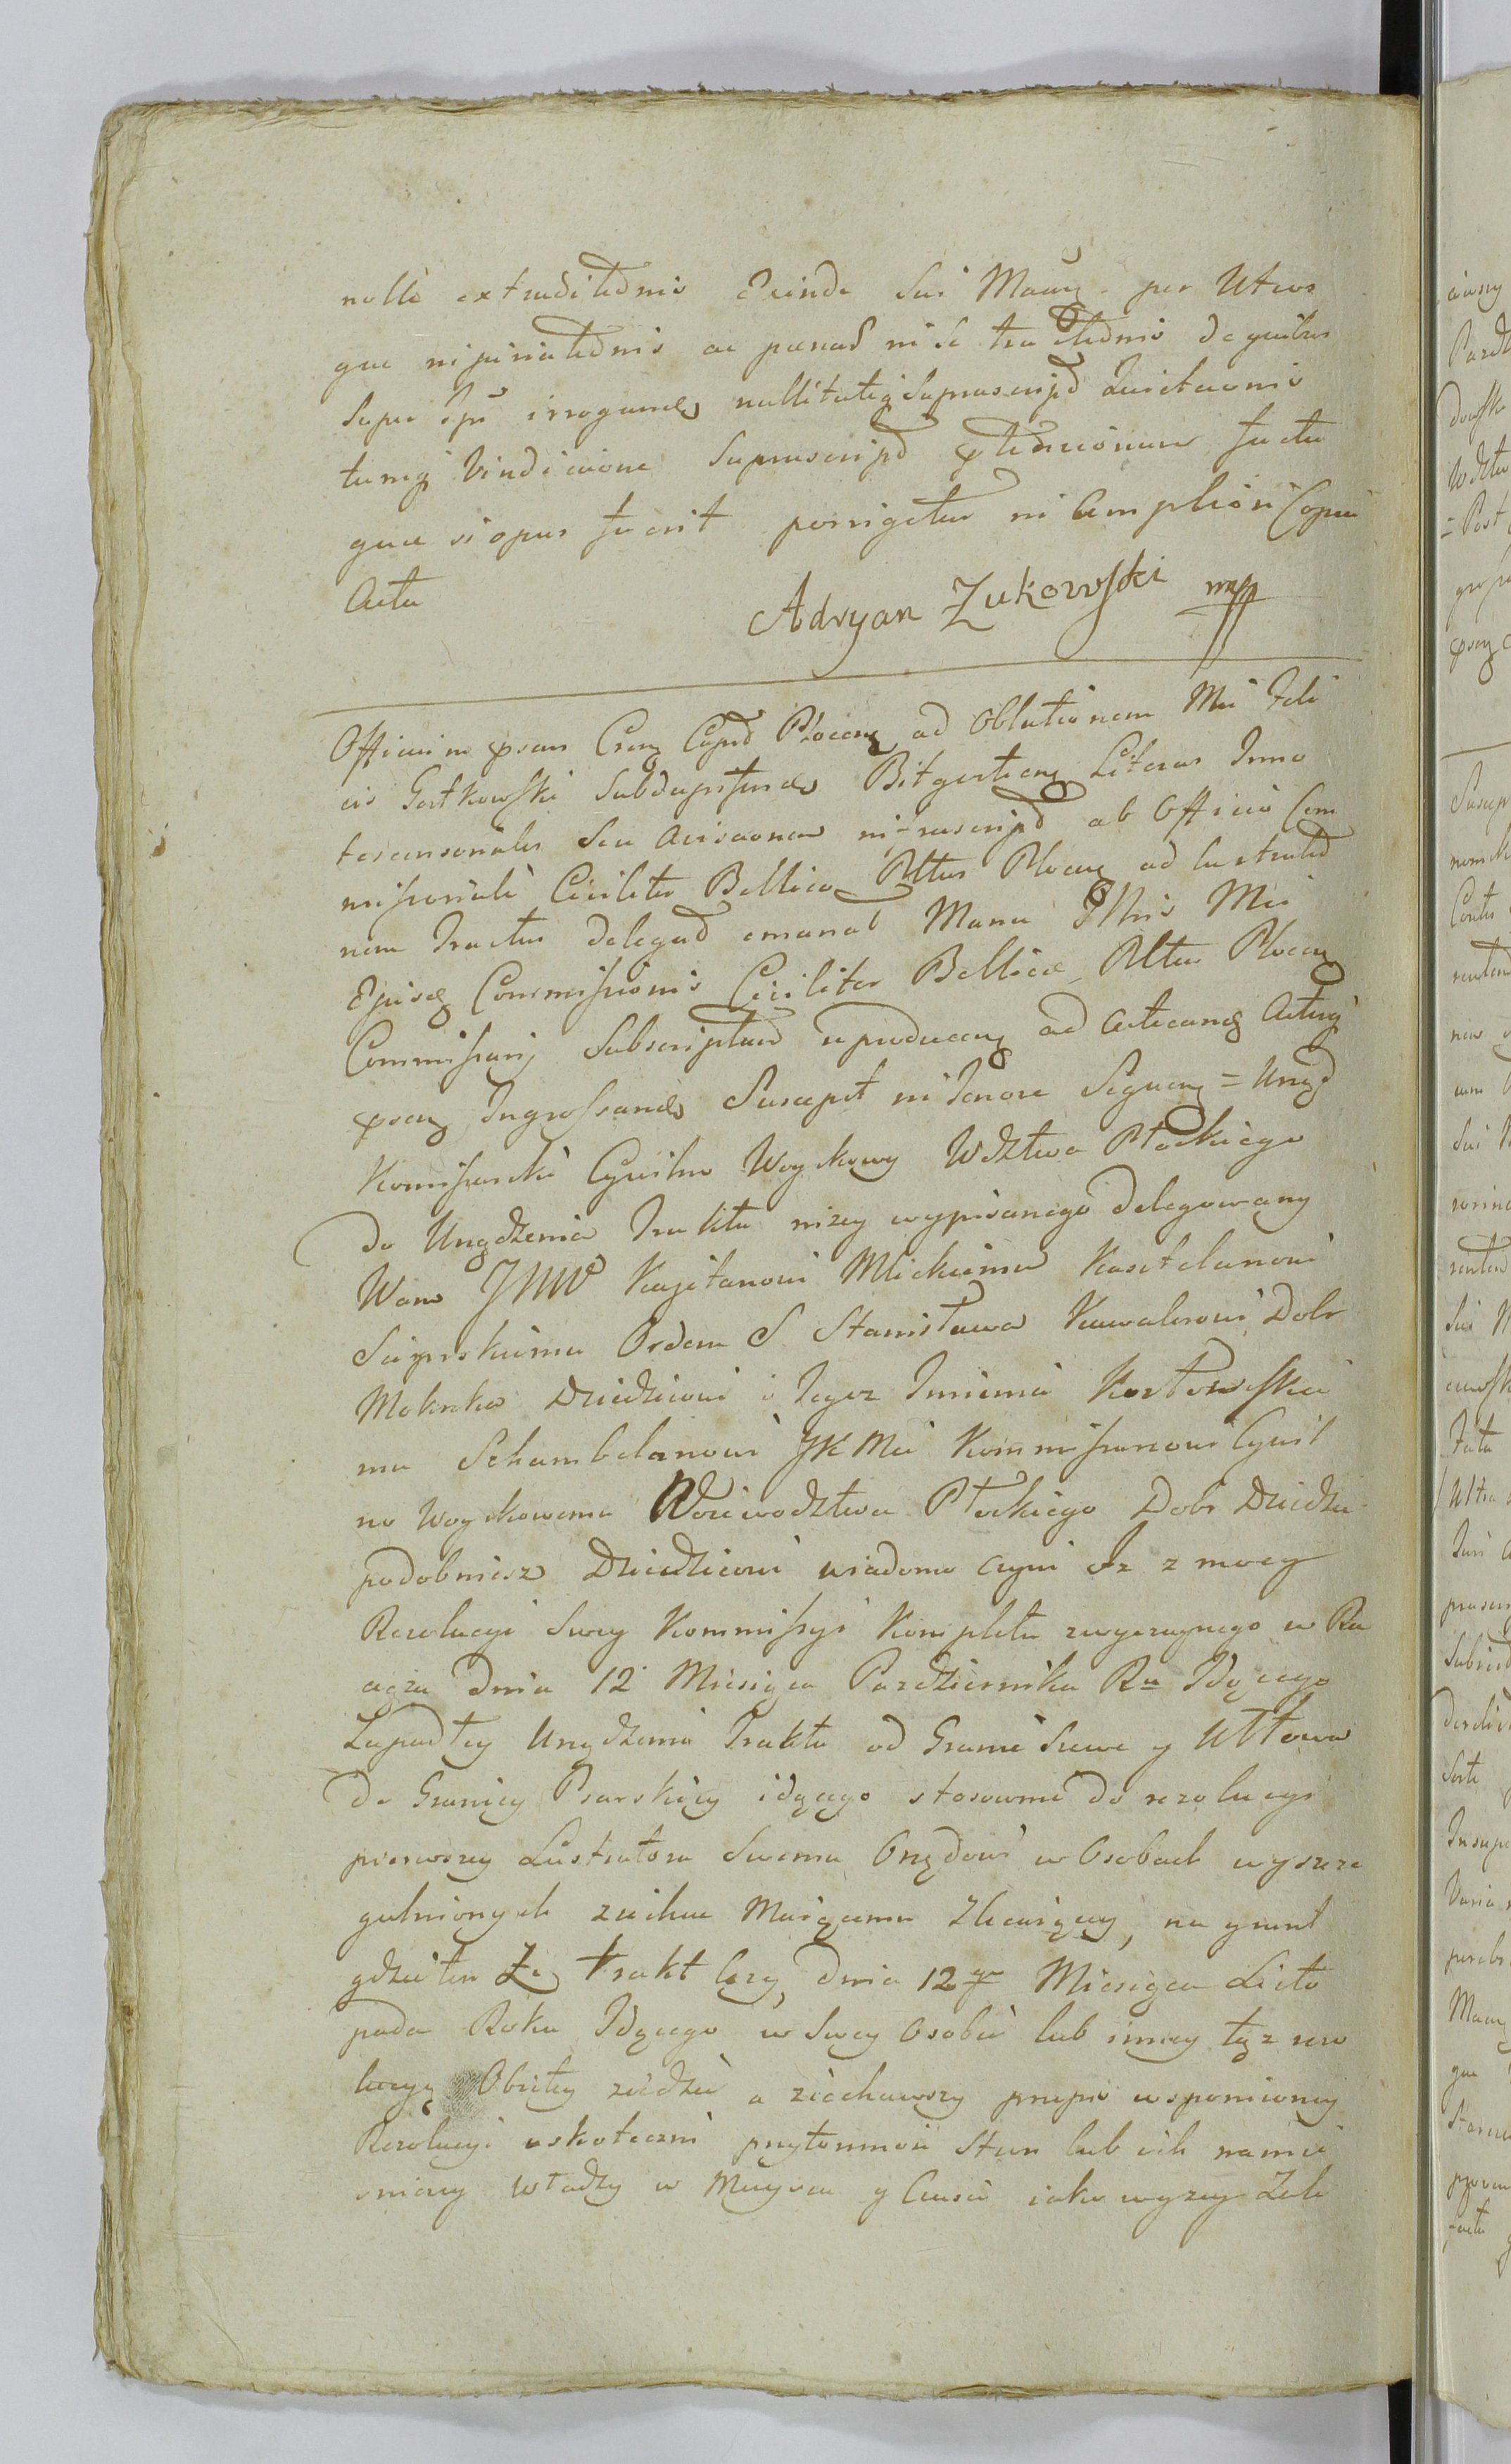 nolle extraditionis Exinde Sui per Utros
que injuriationis ac paenas in se tractionis de quibus
Super irrogand nullitatis Suprascript Quietaonis
Vindicaione Suprascript facta
que si opus fuerit porrigetur in Ampliori Copia
Acta
Adryan Zukowski mpp
Officium psens Cren Capt Plocen ad Oblationem Mci Feli
cis Gostkowski Subdapiferid Literas Inno
tescensoriales Seu Avisaonem infrascript ab Officio Com
missoriali Civiliter Bellico Pttus Plocen ad lustratio
nem Tractus delegat emanat Manu Illris Mci
Ejusd Commissionis Civiliter Bellicae Pttus Plocen
Commissarij Subscriptas reproducen ad Acticand Actisq
psen Ingrossand Suscepit in Tenore Sequen = Urząd
Komissarski Cywilno Woyskowy Wdztwa Płockiego
do Urządzenia Traktu nizey wypisanego delegowany
Wam JMW Kajetanowi Mlickiemu Kasztelanowi
Sierpskiemu Orderu S. Stanisława Kawalerowi Dobr
Mokrka Dziedzicowi i Tegoz Imienia Kozłowskie
mu Schambelanowi JKMci Kommissarzowi Cywil
no Woyskowemu Woiewodztwa Płockiego Dobr Dziedzi
podobniesz Dziedzicowi wiadomo czyni Iz z mocy
Rezolucyi Swey Kommissyi Kompletu zwyczaynego w Ra
ciązu dnia 12 Miesiąca Pazdziernika Ru Idącego
Zapadłey Urządzenia Traktu od Granic Szewc y Uttowa
do Granicy Psarskiey idącego stosownie do rezolucyi
pierwszey Lustratora Swemu Orzędowi w Osobach wyszcze
gulnionych ziechac Maiącemu Zlecaiącey, na grunt
gdzie ten Ze Trakt lezy, dnia 12go Miesiąca Listo
pada Roku Idącego w Swey Osobie lub inney tąz rezo
lucyą Obiętey ziedzie a ziechawszy przepis wspomioney
Rezolucyi uskuteczni przytomnosci Stron lub ich
władzy w Mieyscu y Czasie iako wyzey Zale